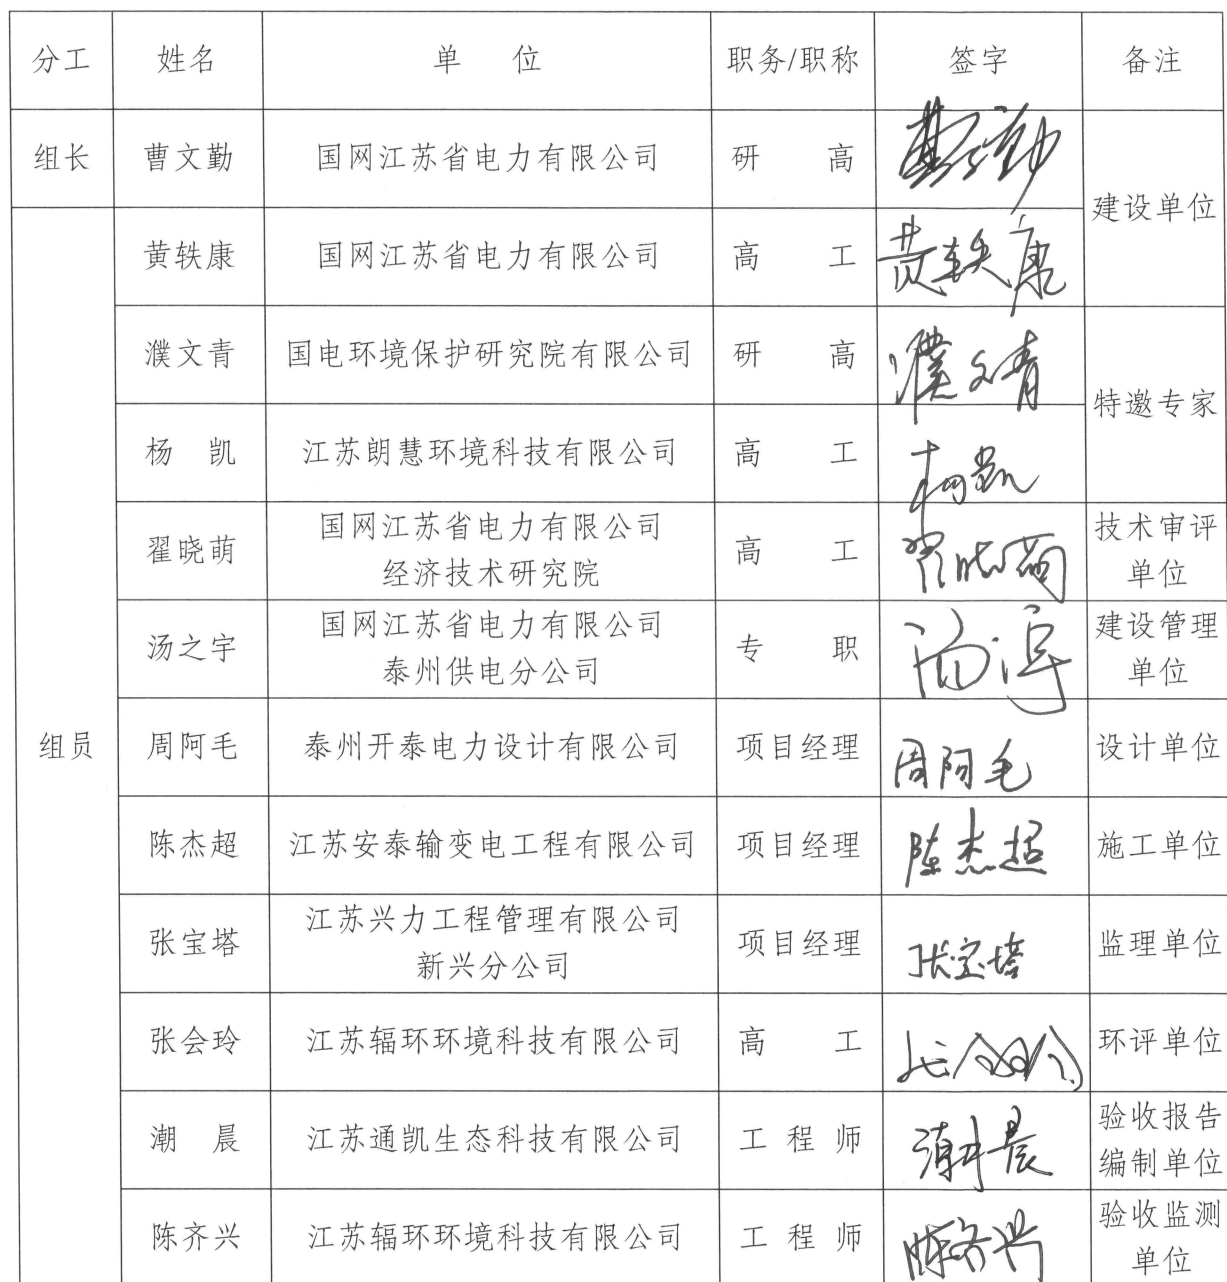 分工 姓名 单 位 职务/职称 签字 备注
组长 曹文勤 国网江苏省电力有限公司 研 高 曹文勤
建设单位
黄轶康 国网江苏省电力有限公司 高 工 黄轶康
濮文青 国电环境保护研究院有限公司 研 高 濮文青
特邀专家
杨 凯 江苏朗慧环境科技有限公司 高 工 杨凯
翟晓萌 国网江苏省电力有限公司 高 工 翟晓萌 技术审评
经济技术研究院 单位
汤之宇 国网江苏省电力有限公司 专 职 建设管理
泰州供电分公司 单位
组员 周阿毛 泰州开泰电力设计有限公司 项目经理 周阿毛 设计单位
陈杰超 江苏安泰输变电工程有限公司 项目经理 陈杰超 施工单位
张宝塔 江苏兴力工程管理有限公司 项目经理 张宝塔 监理单位
新兴分公司
张会玲 江苏辐环环境科技有限公司 高 工 张会玲 环评单位
潮 晨 江苏通凯生态科技有限公司 工 程 师 潮晨 验收报告
编制单位
陈齐兴 江苏辐环环境科技有限公司 工 程 师 陈齐兴 验收监测
单位